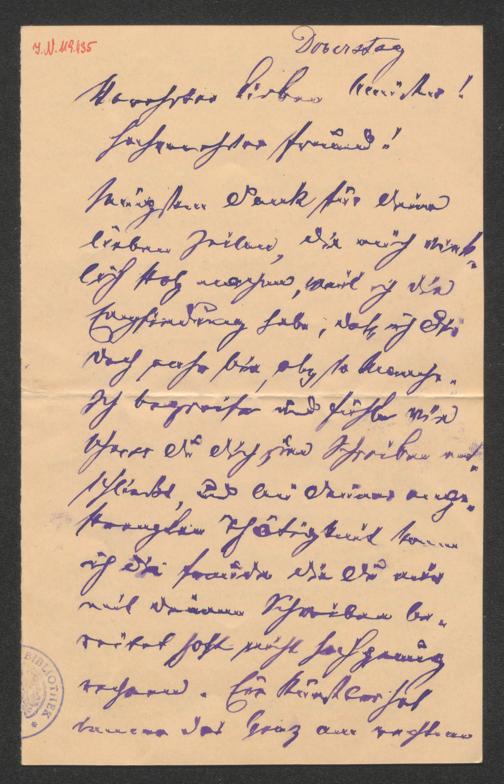 J.N. 119.135
Donerstag
Verehrter lieber Meister!
Hochverehrter Freund!
Innigsten Dank für deine
lieben Zeilen, die mich wirk-
lich stolz machen, weil ich die
Empfindung habe, daß ich Dir
doch mehr bin, als so Manche.
Ich begreife und fühle wie
schwer du dich zum Schreiben ent-
schließt, und bei deiner ange-
strengten Thätigkeit kann
ich die Freude die du mir
mit deinem Schreiben be-
reitet hast nicht hoch genug
rechnen. Ein Künstler hat
immer das Herz am rechten
BIBLIOTHEK